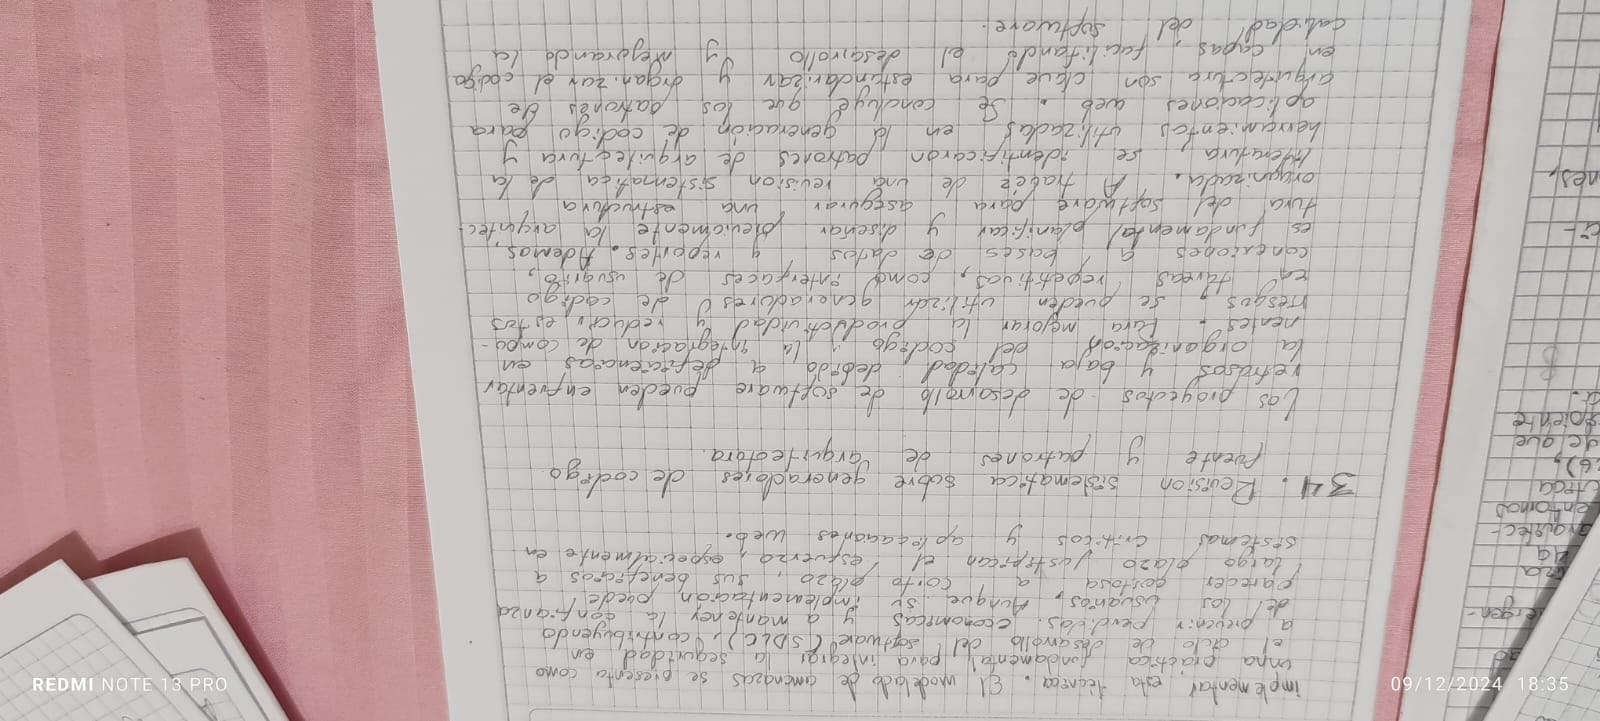 implementar esta técnica. El modelado de amenazas se presenta como
unna práctica fundamental para integrar la seguridad en
el ciclo de desarollo del software (SDLC), contribuyendo
a prevenir perdidas economicas y a mantener la confianza
del los usuarios. Aunque su implementación puede
parecer costosa a corto plazo, sus beneficios a
largo plazo justifican el esfuerzo, especialmente en
sistemas criticos y aplicaciones web.
34. Revision sistematica sobre generadores de codigo
fuente y patrones de arquitectora.
Los proyectos de desarrollo de software pueden enfrentar
retrasos y baja calidad debido a deficiencias en
la organizacion del codigo y la integracion de compo-
nentes. Para mejorar la productividad y reducir estos
riesgos, se pueden utilizar generadores de codigo
en tareas repetitivas, como interfaces de usuario,
conexiones a bases de datos y reportes. Ademas,
es fundamental planificar y diseñar previamente la arquitec-
tura del software para asegurar una estructura
organizada. A trabez de una revision sistematica de la
literatura, se identificaron patrones de arquitectura y
herramientas utilizadas en la generación de codigo para
aplicaciones web. Se concluye que los patrones de
arquitectura son clave para estandarizar y organizar el codigo
en capas, facilitando el desarrollo y mejorando la
calidad del software.
REDMI NOTE 13 PRO
09/12/2024 18:35